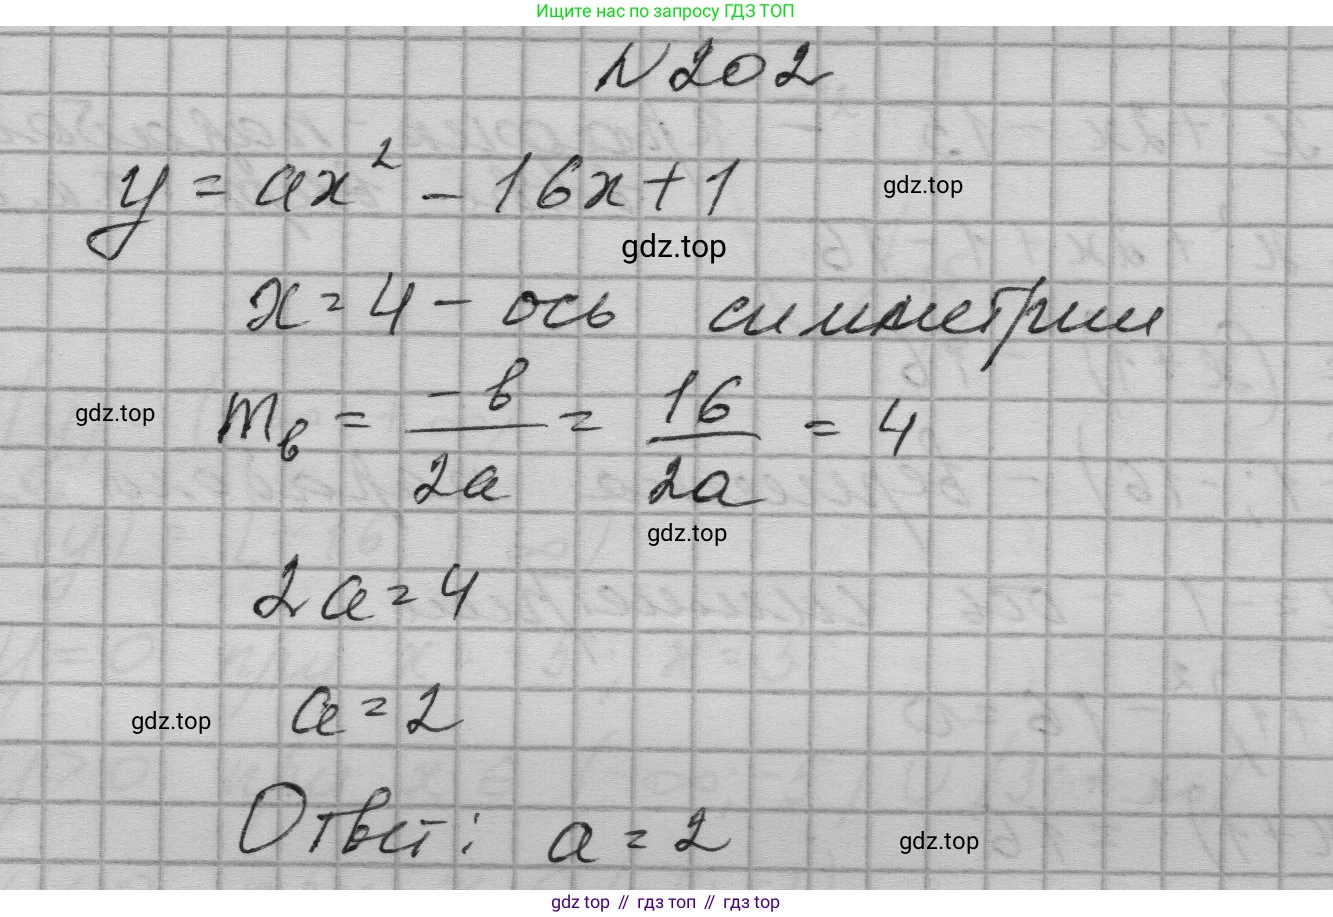 Ищите нас по запросу ГДЗ ТОП
N 202
y = ax² - 16x + 1
gdz.top
gdz.top
x = 4 - ось симметрии
gdz.top
m_в = -b/2a = 16/2a = 4
gdz.top
2a = 4
a = 2
gdz.top
Ответ: a = 2
gdz.top
gdz top // гдз топ // gdz top